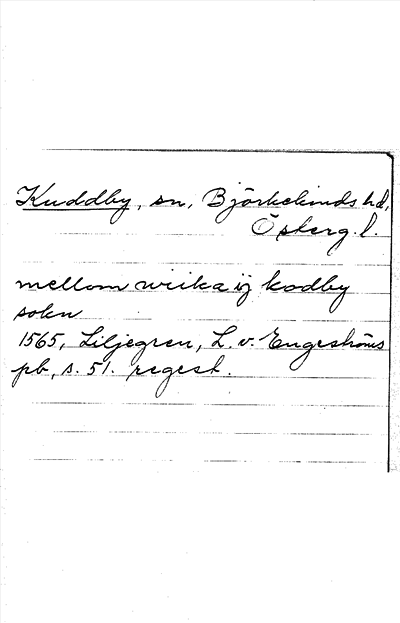 Kuddby, sn, Björkekinds hd,
Östergl.
mellom wiika ij kodby
sokn
1565, Liljegren, L. v. Engeströms
pb, s. 51. regest.